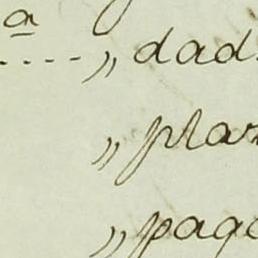 a
.... " dad
" plan
" pago